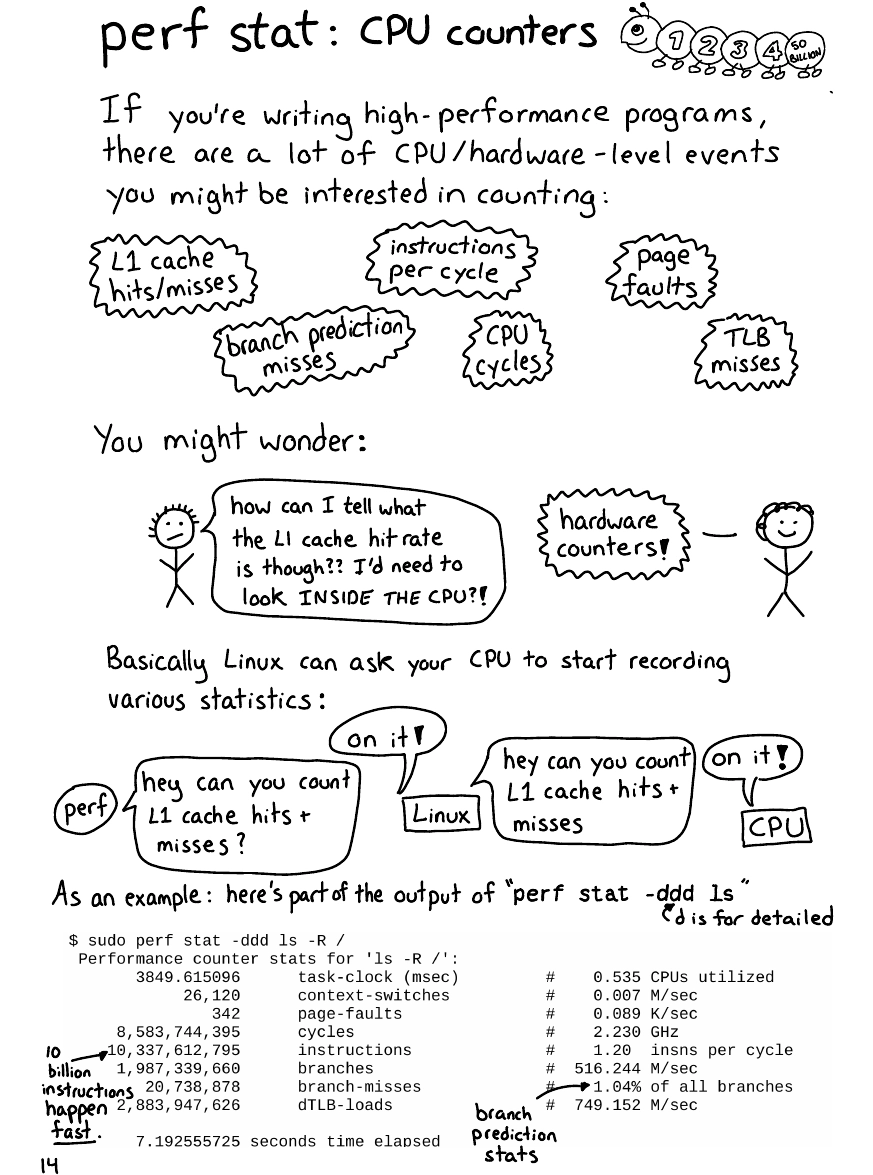 perf stat: CPU counters
1 2 3 4 50 BILLION
If you're writing high-performance programs,
there are a lot of CPU/hardware-level events
you might be interested in counting:
L1 cache
hits/misses
instructions
per cycle
page
faults
branch prediction
misses
CPU
cycles
TLB
misses
You might wonder:
how can I tell what
the L1 cache hit rate
is though?? I'd need to
look INSIDE THE CPU?!
hardware
counters!
Basically Linux can ask your CPU to start recording
various statistics:
perf
hey can you count
L1 cache hits +
misses?
on it!
Linux
hey can you count
L1 cache hits +
misses
on it!
CPU
As an example: here's part of the output of "perf stat -ddd ls"
d is for detailed
$ sudo perf stat -ddd ls -R /
Performance counter stats for 'ls -R /':
3849.615096 task-clock (msec) # 0.535 CPUs utilized
26,120 context-switches # 0.007 M/sec
342 page-faults # 0.089 K/sec
8,583,744,395 cycles # 2.230 GHz
10,337,612,795 instructions # 1.20 insns per cycle
1,987,339,660 branches # 516.244 M/sec
20,738,878 branch-misses # 1.04% of all branches
2,883,947,626 dTLB-loads # 749.152 M/sec
7.192555725 seconds time elapsed
10
billion
instructions
happen
fast.
branch
prediction
stats
14